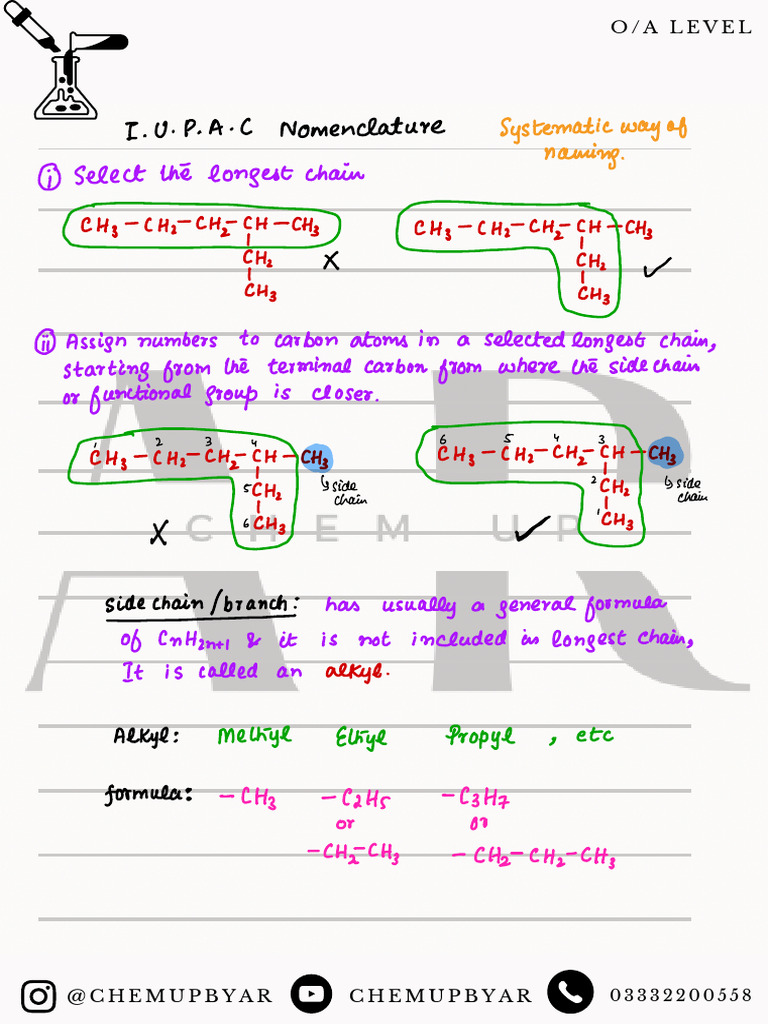 O/A LEVEL
I.U.P.A.C Nomenclature
Systematic way of
naming.
i) Select the longest chain
CH3 — CH2 — CH2 — CH — CH3
CH2
CH3
X
CH3 — CH2 — CH2 — CH — CH3
CH2
CH3
✓
ii) Assign numbers to carbon atoms in a selected longest chain,
starting from the terminal carbon from where the side chain
or functional group is closer.
1 2 3 4
CH3 — CH2 — CH2 — CH — CH3
5 CH2
6 CH3
↳ side
chain
X
6 5 4 3
CH3 — CH2 — CH2 — CH — CH3
2 CH2
1 CH3
↳ side
chain
✓
CHEM UP
AR
side chain/branch: has usually a general formula
of CnH2n+1 & it is not included in longest chain,
It is called an alkyl.
Alkyl: Methyl Ethyl Propyl , etc
formula: —CH3 —C2H5 —C3H7
or or
—CH2—CH3 —CH2—CH2—CH3
@CHEMUPBYAR CHEMUPBYAR 03332200558